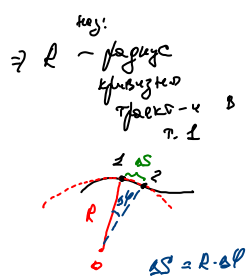 наз:
⇒ R – радиус
кривизны
траект-и в
т. 1
1 ΔS 2
R Δφ
0
ΔS = R·Δφ